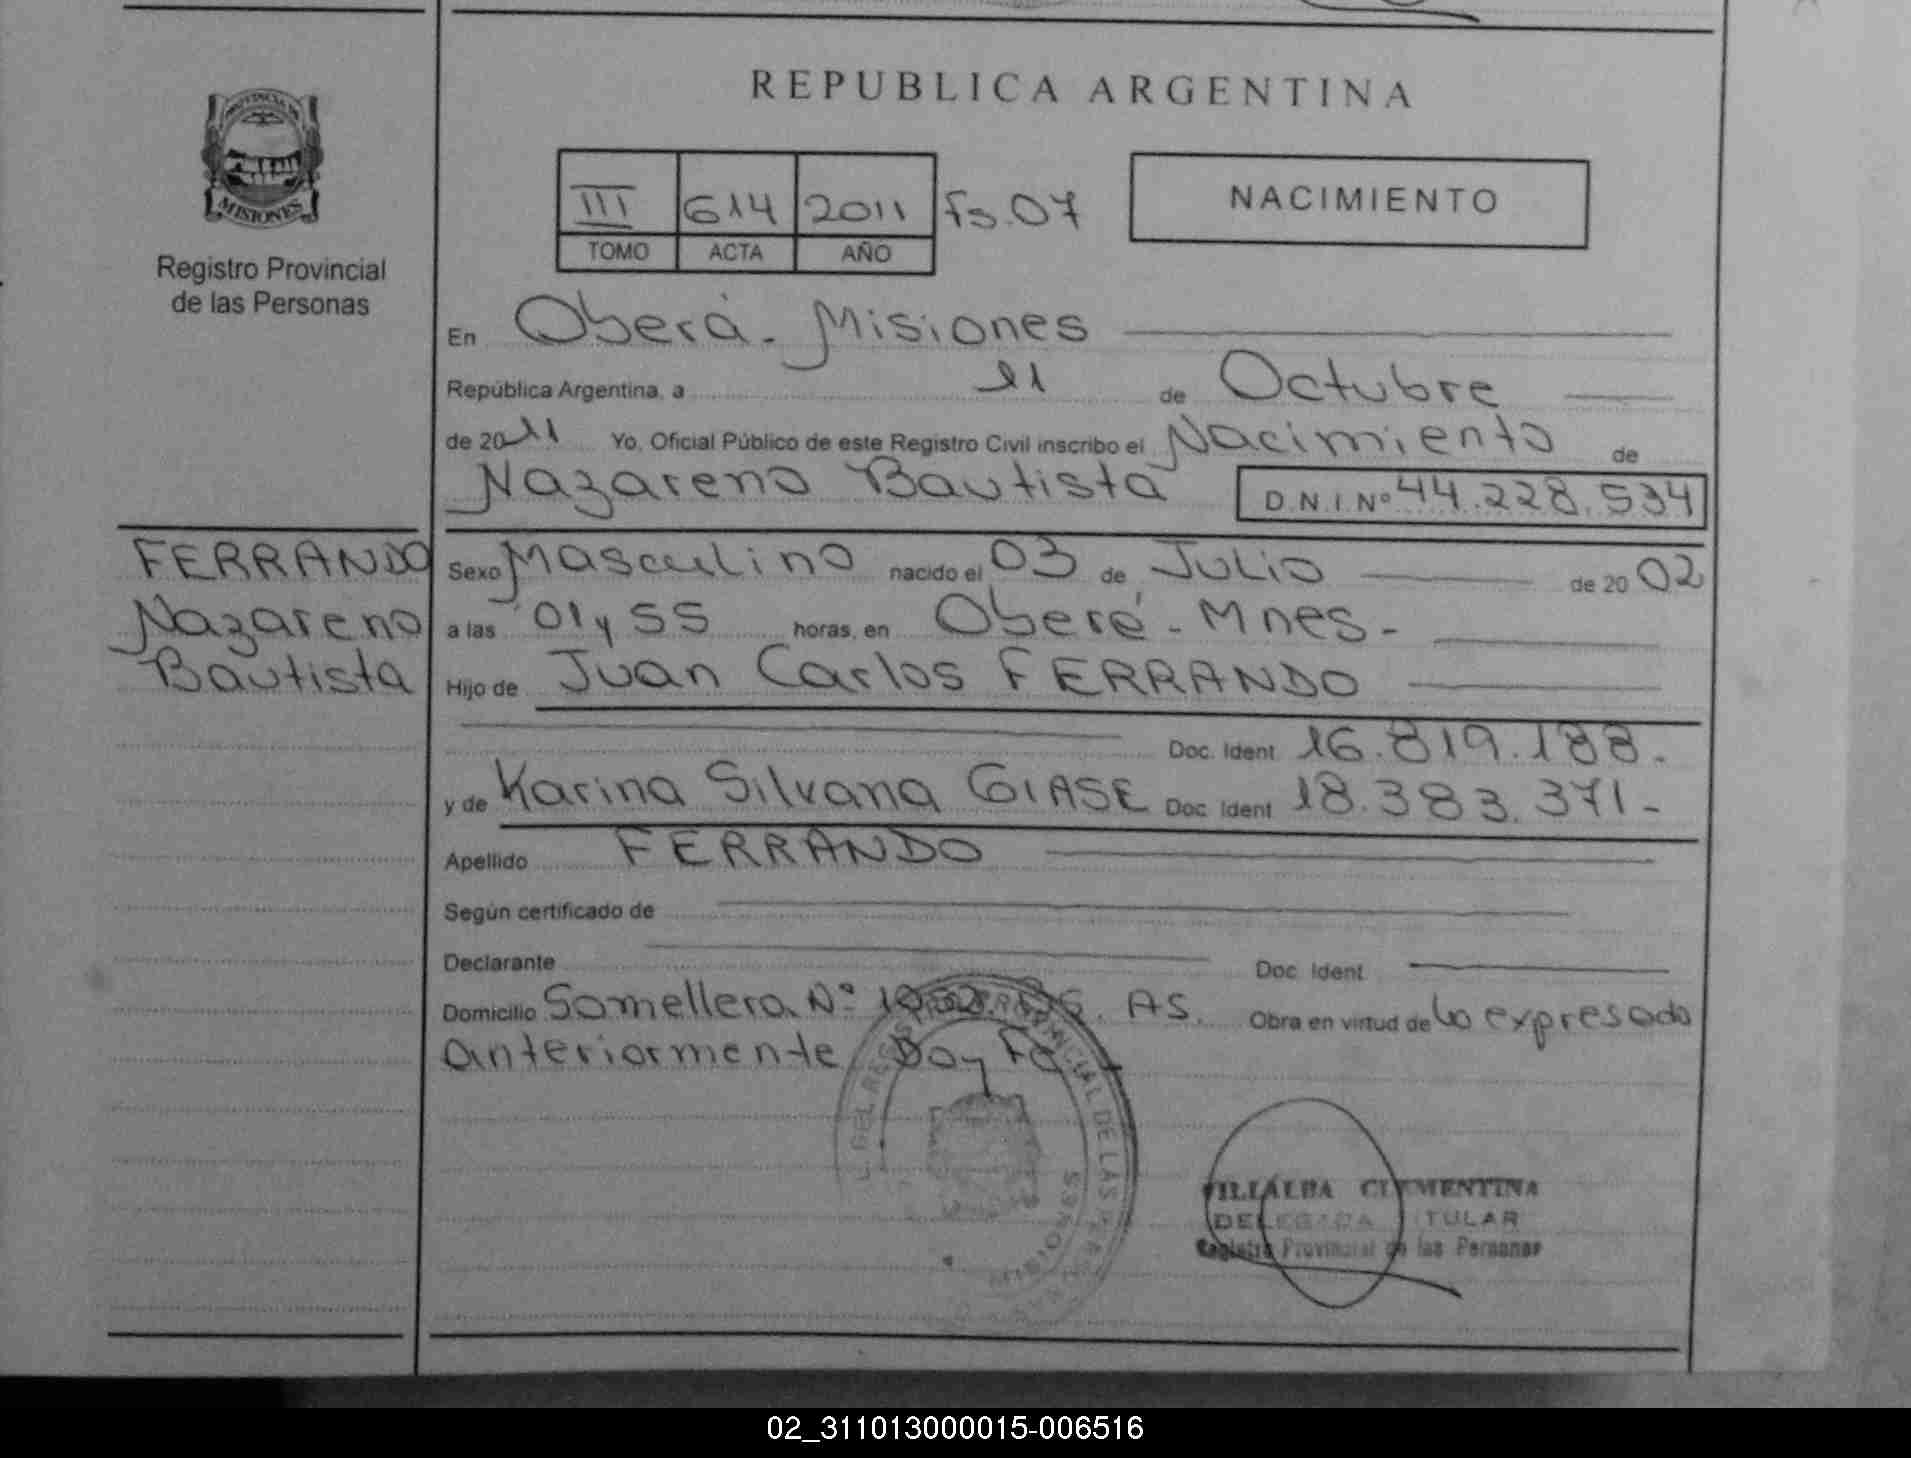 REPUBLICA ARGENTINA
PROVINCIA DE
MISIONES
Registro Provincial
de las Personas
III 614 2011 Fs.07
TOMO ACTA AÑO
NACIMIENTO
En Oberá - Misiones
República Argentina, a 11 de Octubre
de 2011 Yo, Oficial Público de este Registro Civil inscribo el Nacimiento de
Nazareno Bautista D.N.I.Nº 44.228.534
FERRANDO
Nazareno
Bautista
Sexo Masculino nacido el 03 de Julio de 20 02
a las 01 y 55 horas, en Oberá - Mnes -
Hijo de Juan Carlos FERRANDO
Doc. Ident. 16.819.188.
y de Karina Silvana GIASE Doc. Ident. 18.383.371-
Apellido FERRANDO
Según certificado de
Declarante Doc. Ident.
Domicilio Somellera Nº AS. Obra en virtud de lo expresado
anteriormente Doy Fe
MISIONES
VILLALBA CLEMENTINA
DELEGADA TITULAR
Registro Provincial de las Personas
02_311013000015-006516